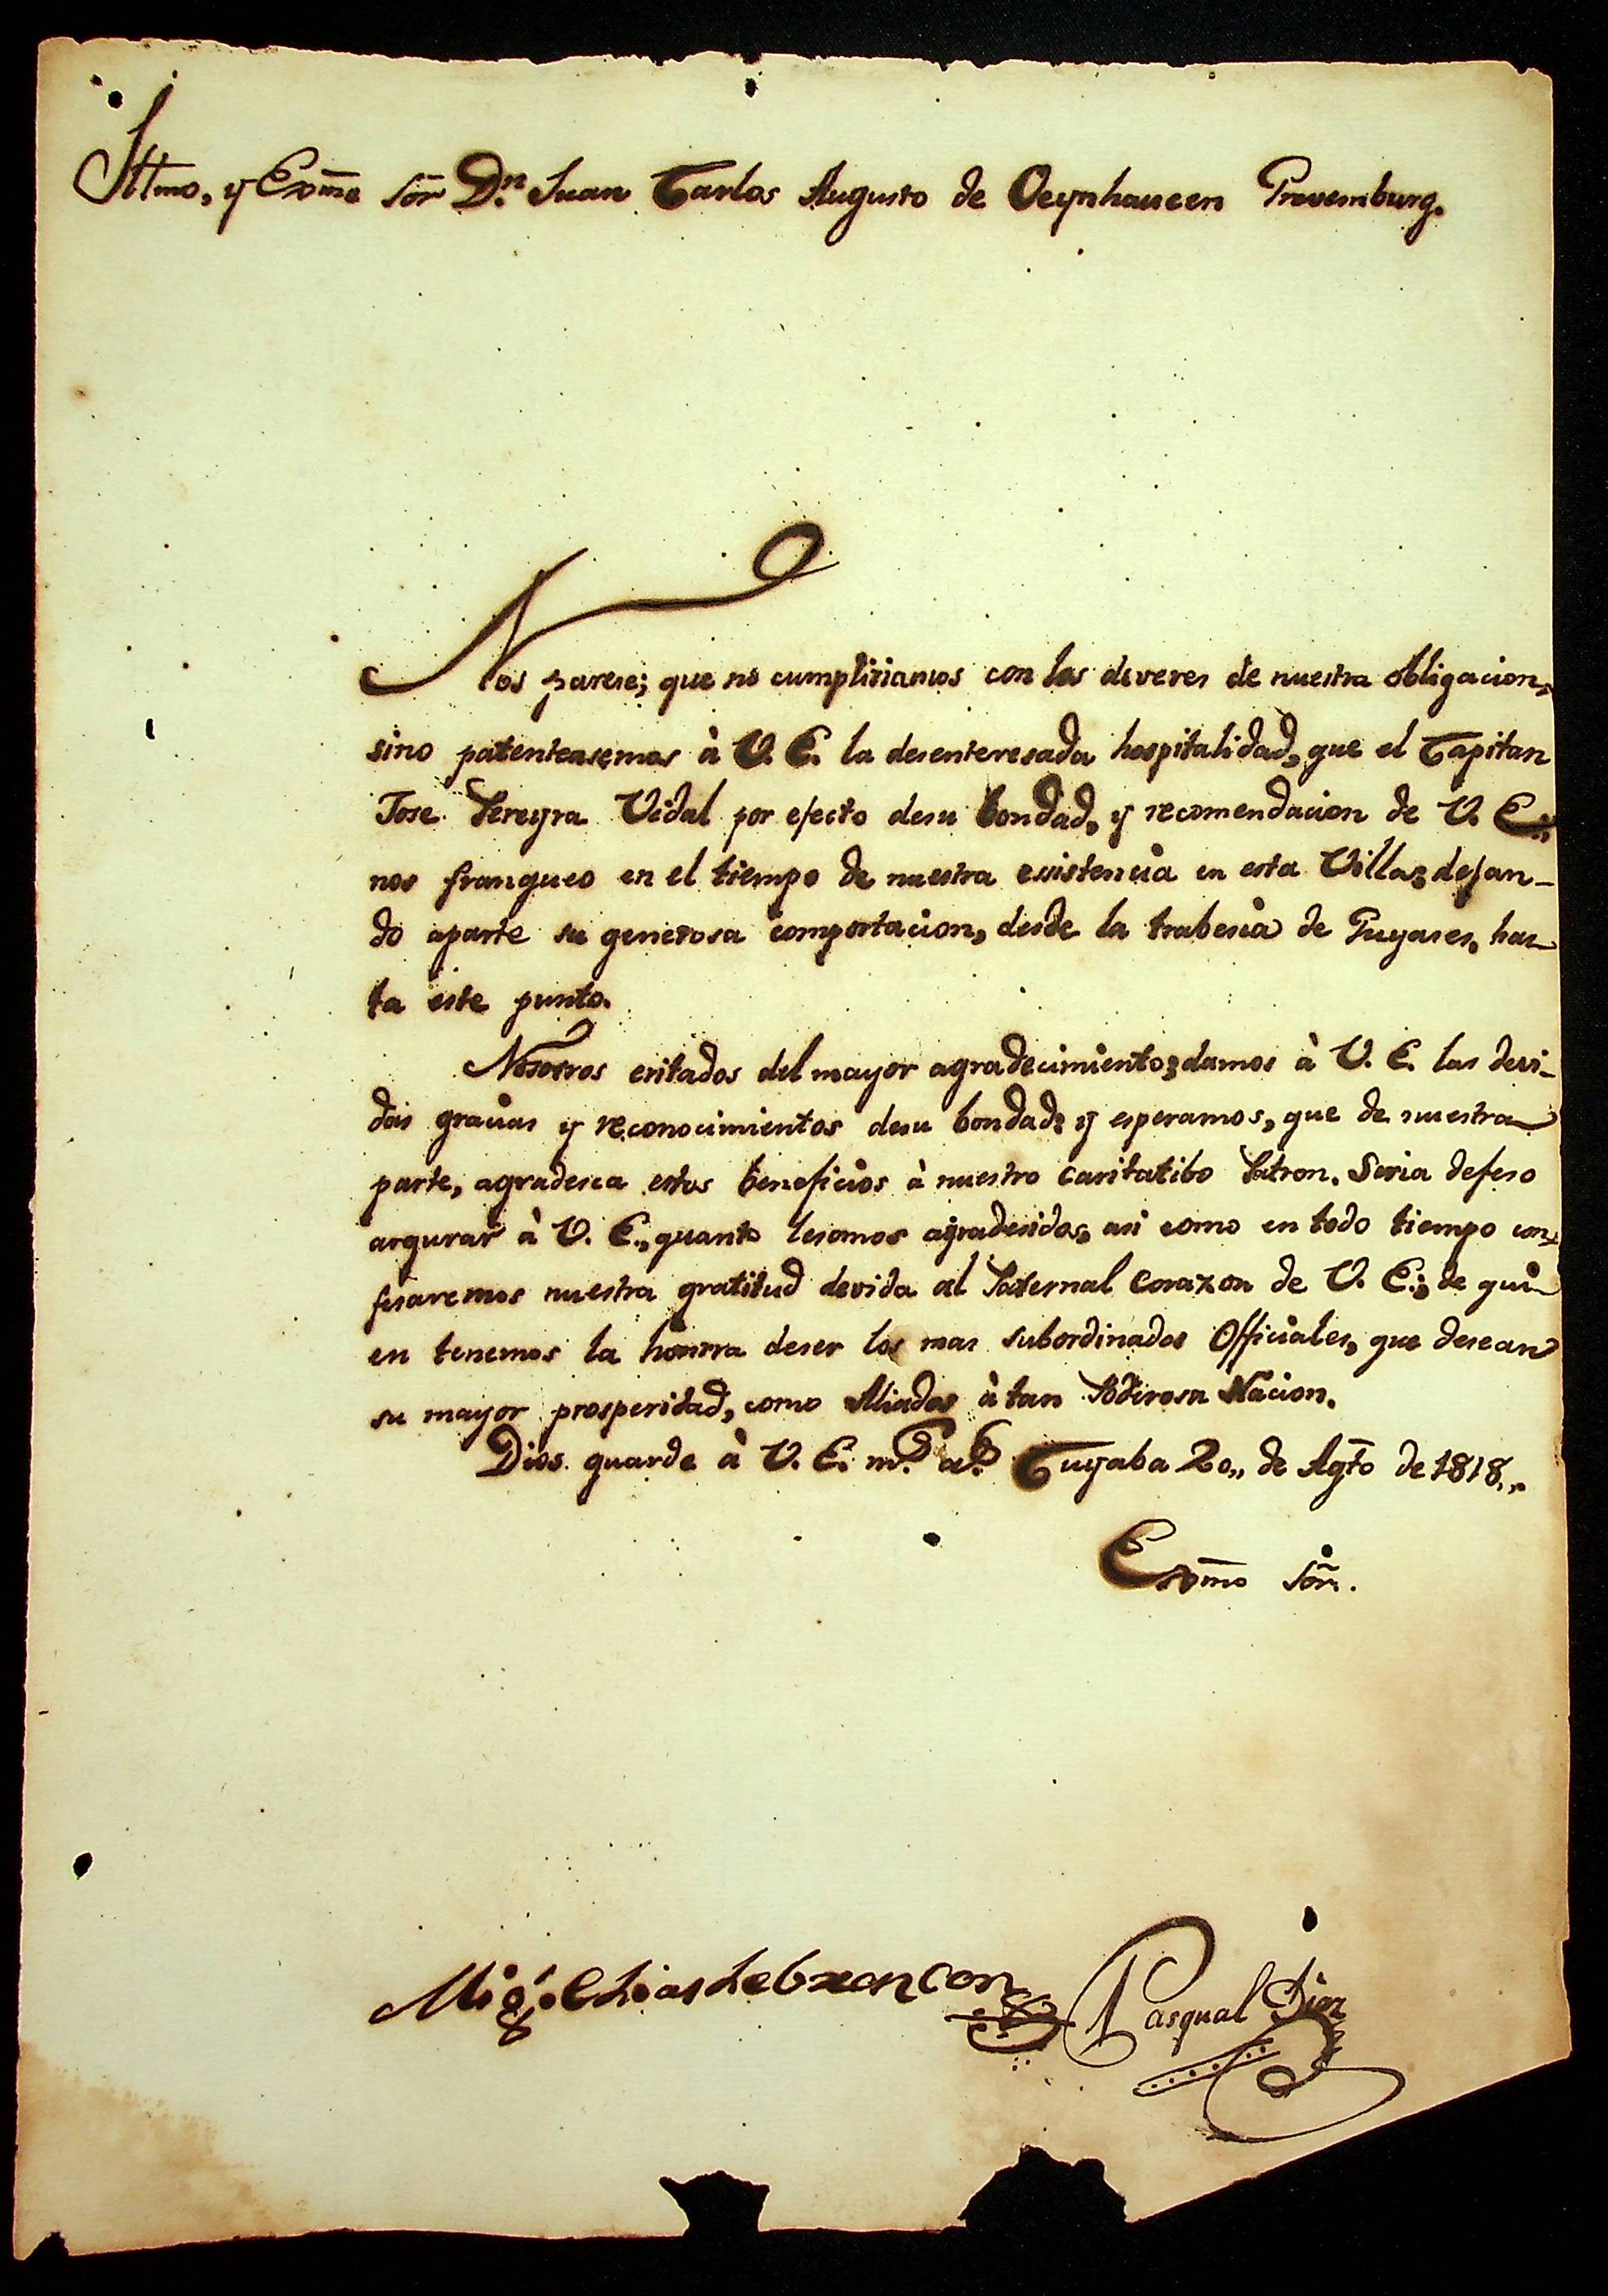 Illmo, y Exc̄mo Sōr D.n Juan Carlos Augusto de Oeynhaucen Gravemburg.
Nos parese; que no cumpliriamos con los deveres de nuestra obligacion,
sino patenteasemos à V. E. la desenteresada hospitalidad, que el Capitan
Jose Pereyra Vidal por efecto desu bondad, y recomendacion de V. E.,
nos franqueo en el tiempo de nuestra existencia en esta Villa; dejan-
do aparte su generosa comportacion, desde la trabesia de Guyases, has-
ta este punto.
Nosotros exitados del mayor agradecimiento; damos à V. E. las devi-
das gracias y reconocimientos desu bondad; y esperamos, que de nuestra
parte, agradesca estos beneficios à nuestro caritatibo Patron. Seria defeso
asgurar à V. E., quanto lesomos agradesidos, asi como en todo tiempo con-
fesaremos nuestra gratitud devida al Paternal Corazon de V. E.; de qui-
en tenemos la honrra deser los mas subordinados Officiales, que desean
su mayor prosperidad, como Aliados à tan Poderosa Nacion.
Dios guarde à V. E. m.s a.s Cuyaba 20,, de Agt̄o de 1818,,
Exm̄o Sōr.
Mig.l Elias Lebrencon Pasqual Diaz